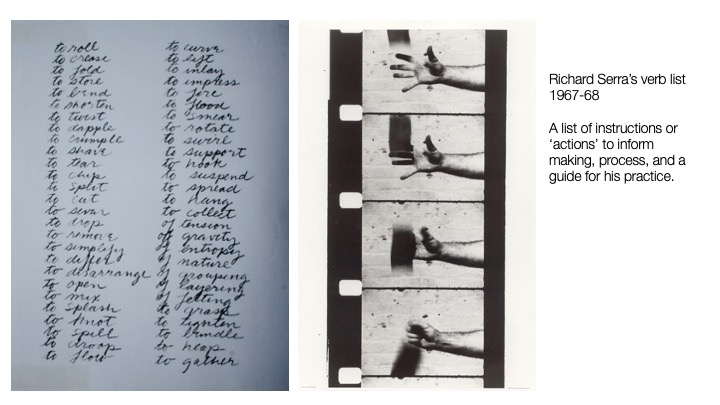 to roll
to crease
to fold
to store
to bend
to shorten
to twist
to dapple
to crumple
to shave
to tear
to chip
to split
to cut
to sever
to drop
to remove
to simplify
to differ
to disarrange
to open
to mix
to splash
to knot
to spill
to droop
to flow
to curve
to lift
to inlay
to impress
to fire
to flood
to smear
to rotate
to swirl
to support
to hook
to suspend
to spread
to hang
to collect
of tension
of gravity
of entropy
of nature
of grouping
of layering
of felting
to grasp
to tighten
to bundle
to heap
to gather
Richard Serra's verb list
1967-68
A list of instructions or
‘actions’ to inform
making, process, and a
guide for his practice.